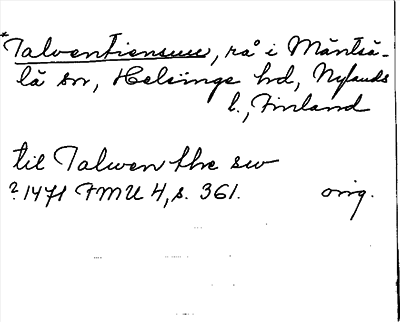 *Talventiensuu, rå i Mäntsä-
lä sn, Helsinge hd, Nylands
l., Finland
til Talwen the sw
?1471 FMU 4, s. 361. orig.